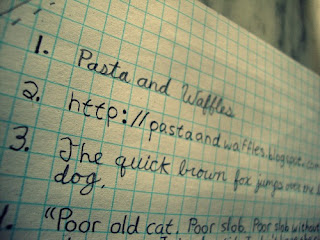 1. Pasta and Waffles
2. http://pastaandwaffles.blogspot.com
3. The quick brown fox jumps over the
dog.
"Poor old cat. Poor slob. Poor slob without